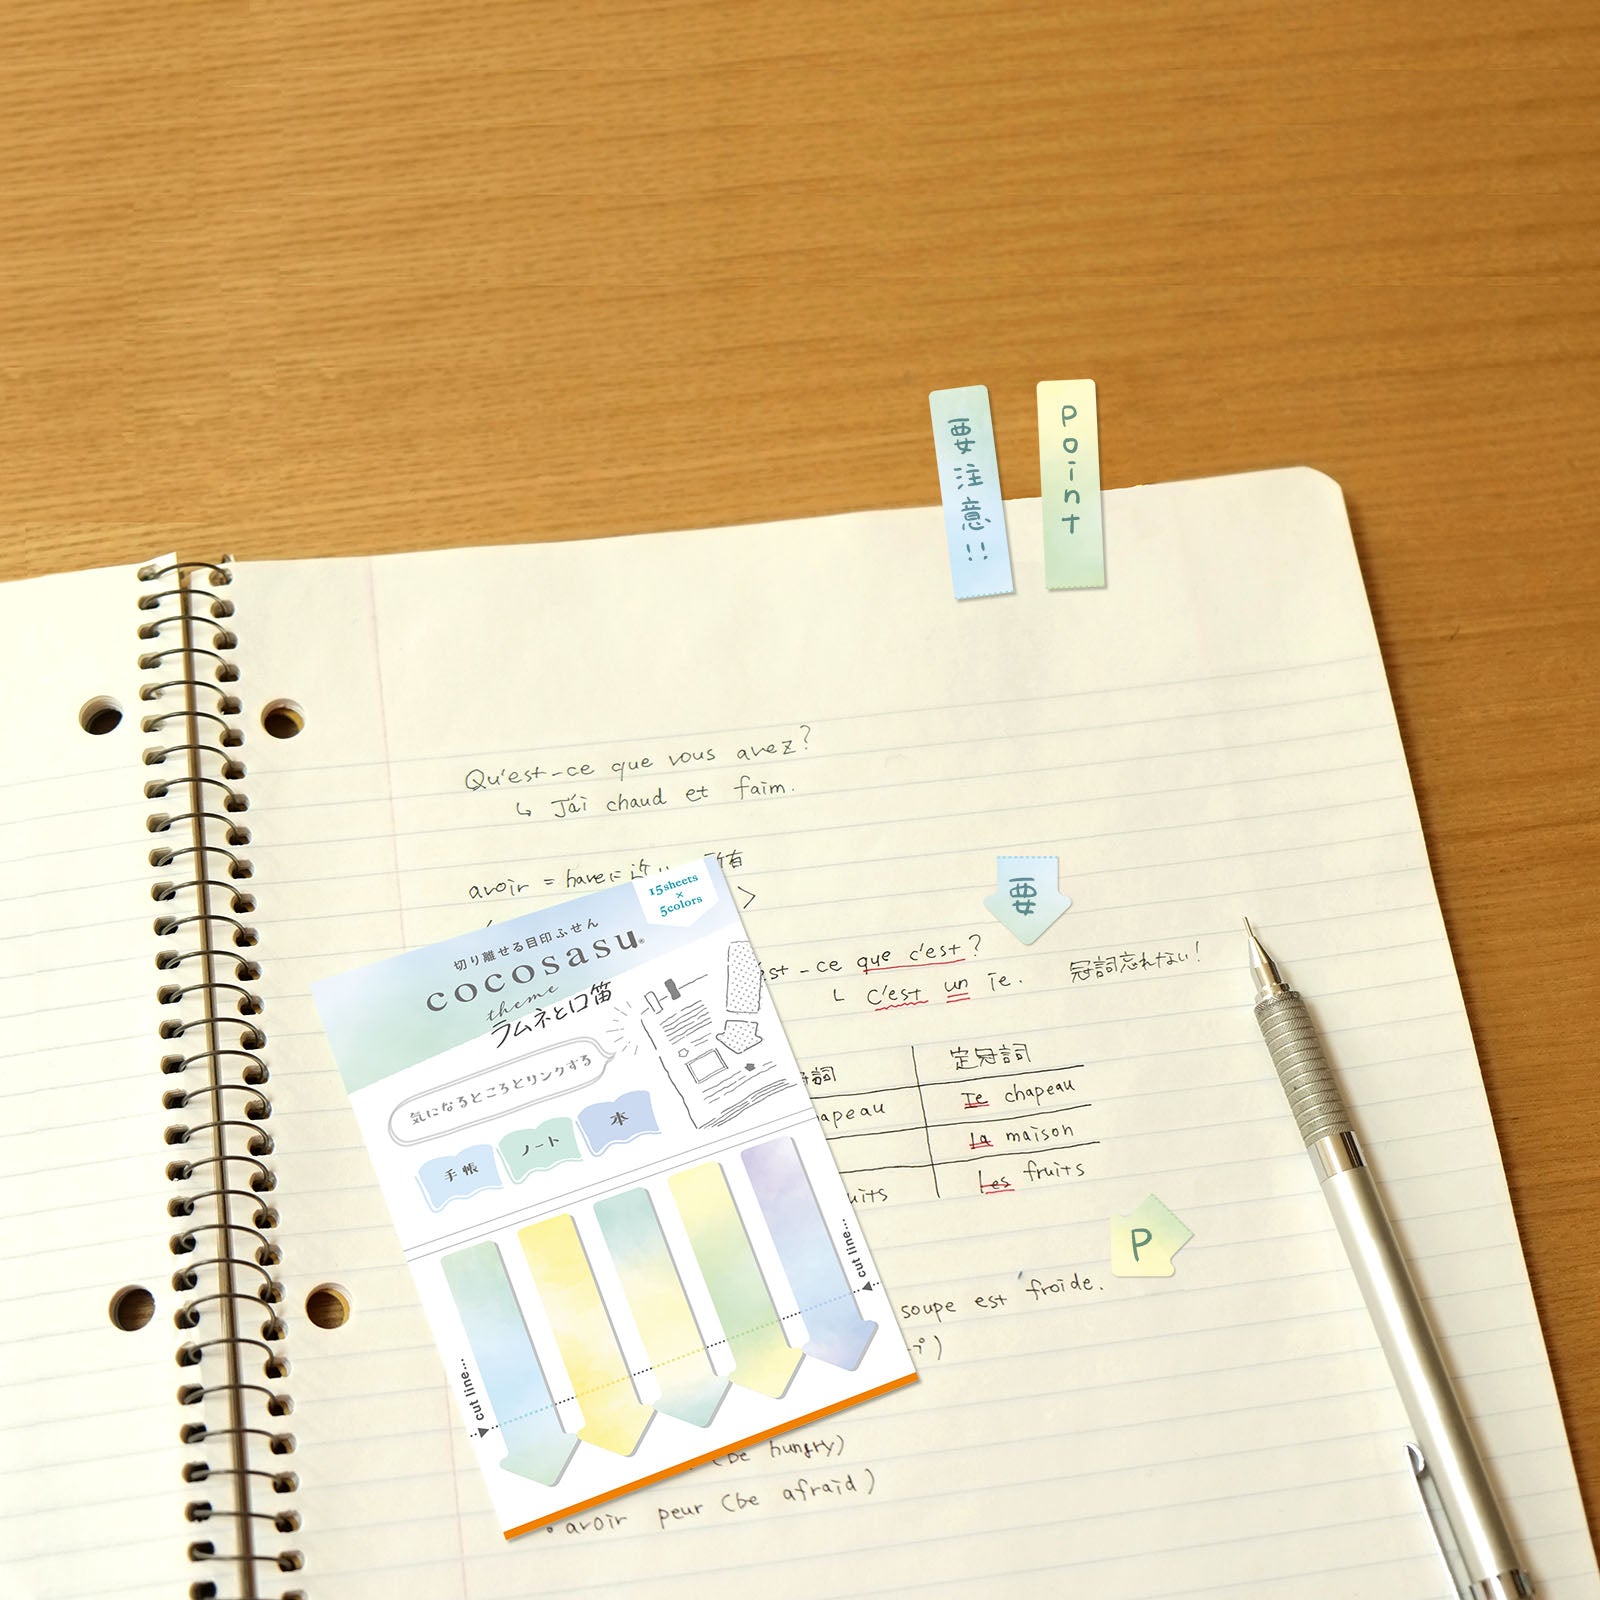 要注意!!
Point
Qu'est-ce que vous avez?
↳ J'ai chaud et faim.
avoir = haveに近い 所有
要
est-ce que c'est?
C'est un ie.
冠詞忘れない!
冠詞
定冠詞
chapeau
Ie chapeau
la maison
uits
Les fruits
P
soupe est froide.
(be hungry)
• avoir peur (be afraid)
15sheets
×
5colors
切り離せる目印ふせん
cocosasu®
theme
ラムネと口笛
気になるところとリンクする
手帳
ノート
本
cut line...
cut line...